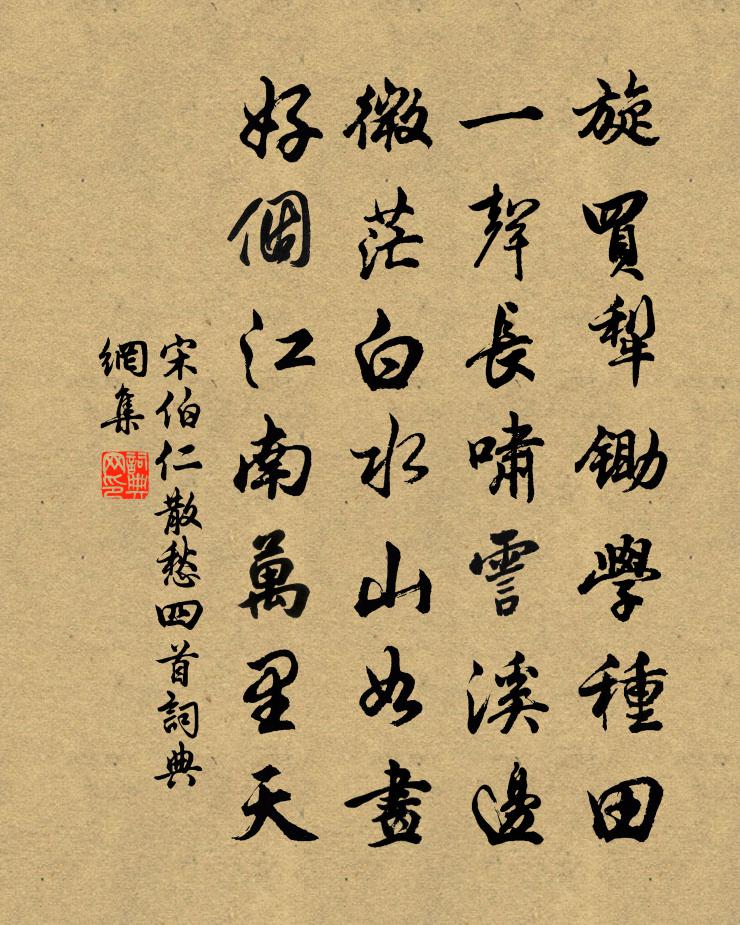 旋買犁鋤學種田
一聲長嘯霅溪邊
微茫白水山如畫
好個江南萬里天
宋伯仁散愁四首詞典
網集
詞典
网印